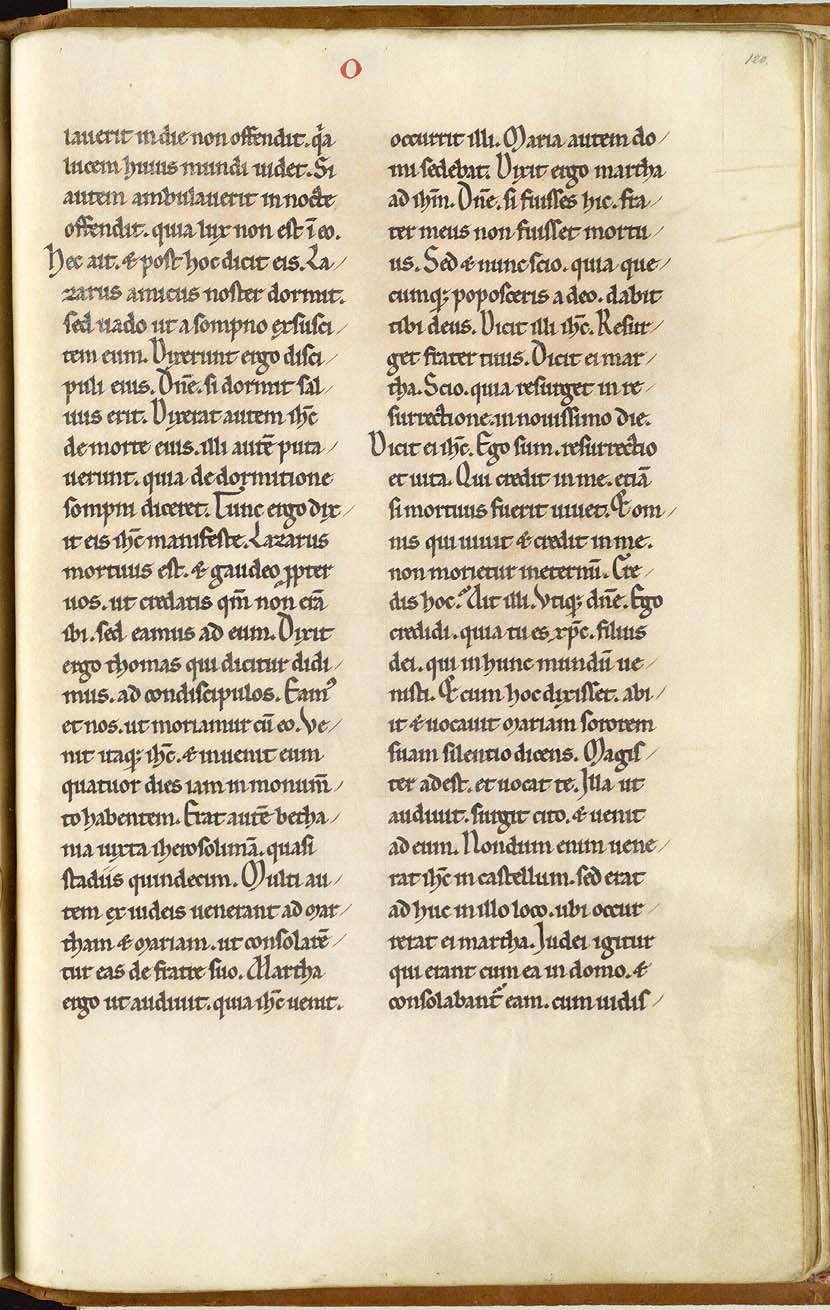 O
120.
lauerit in die non offendit. qa
lucem huius mundi uidet. Si
autem ambulauerit in nocte
offendit. quia lux non est ī eo.
Hec ait. & post hoc dicit eis. La/
zarus amicus noster dormit.
sed uado ut a sompno exsusci/
tem eum. Dixerunt ergo disci/
puli eius. Dn̄e. si dormit sal/
uus erit. Dixerat autem ih̄c
de morte eius. illi autē puta/
uerunt. quia de dormitione
sompni diceret. Tunc ergo dix/
it eis ih̄c manifeste. Lazarus
mortuus est. & gaudeo ꝓpter
uos. ut credatis qm̄ non erā
ibi. sed eamus ad eum. Dixit
ergo thomas qui dicitur didi/
mus. ad condiscipulos. Eamꝰ
et nos. ut moriamur cū eo. Ve/
nit itaq; ih̄c. & inuenit eum
quatuor dies iam in monum̄/
to habentem. Erat autē betha/
nia iuxta iherosolimā. quasi
stadiis quindecim. Multi au/
tem ex iudeis uenerant ad mar/
tham & mariam. ut consolarē/
tur eas de fratre suo. Martha
ergo ut audiuit. quia ih̄c uenit.
occurrit illi. Maria autem do/
mi sedebat. Dixit ergo martha
ad ih̄m. Dn̄e. si fuisses hic. fra/
ter meus non fuisset mortu/
us. Sed & nunc scio. quia que/
cumq; poposceris a deo. dabit
tibi deus. Dicit illi ih̄c. Resur/
get frater tuus. Dicit ei mar/
tha. Scio. quia resurget in re/
surrectione. in nouissimo die.
Dicit ei ih̄c. Ego sum. resurrectio
et uita. Qui credit in me. etiā
si mortuus fuerit uiuet. Et om/
nis qui uiuit & credit in me.
non morietur in eternū. Cre/
dis hoc. Ait illi. Vtiq; dn̄e. Ego
credidi. quia tu es xp̄c. filius
dei. qui in hunc mundū ue/
nisti. Et cum hoc dixisset. abi/
it & uocauit mariam sororem
suam silentio dicens. Magis/
ter adest. et uocat te. Illa ut
audiuit. surgit cito. & uenit
ad eum. Nondum enim uene/
rat ih̄c in castellum. sed erat
ad huc in illo loco. ubi occur/
rerat ei martha. Iudei igitur
qui erant cum ea in domo. &
consolabant᷑ eam. cum uidis/